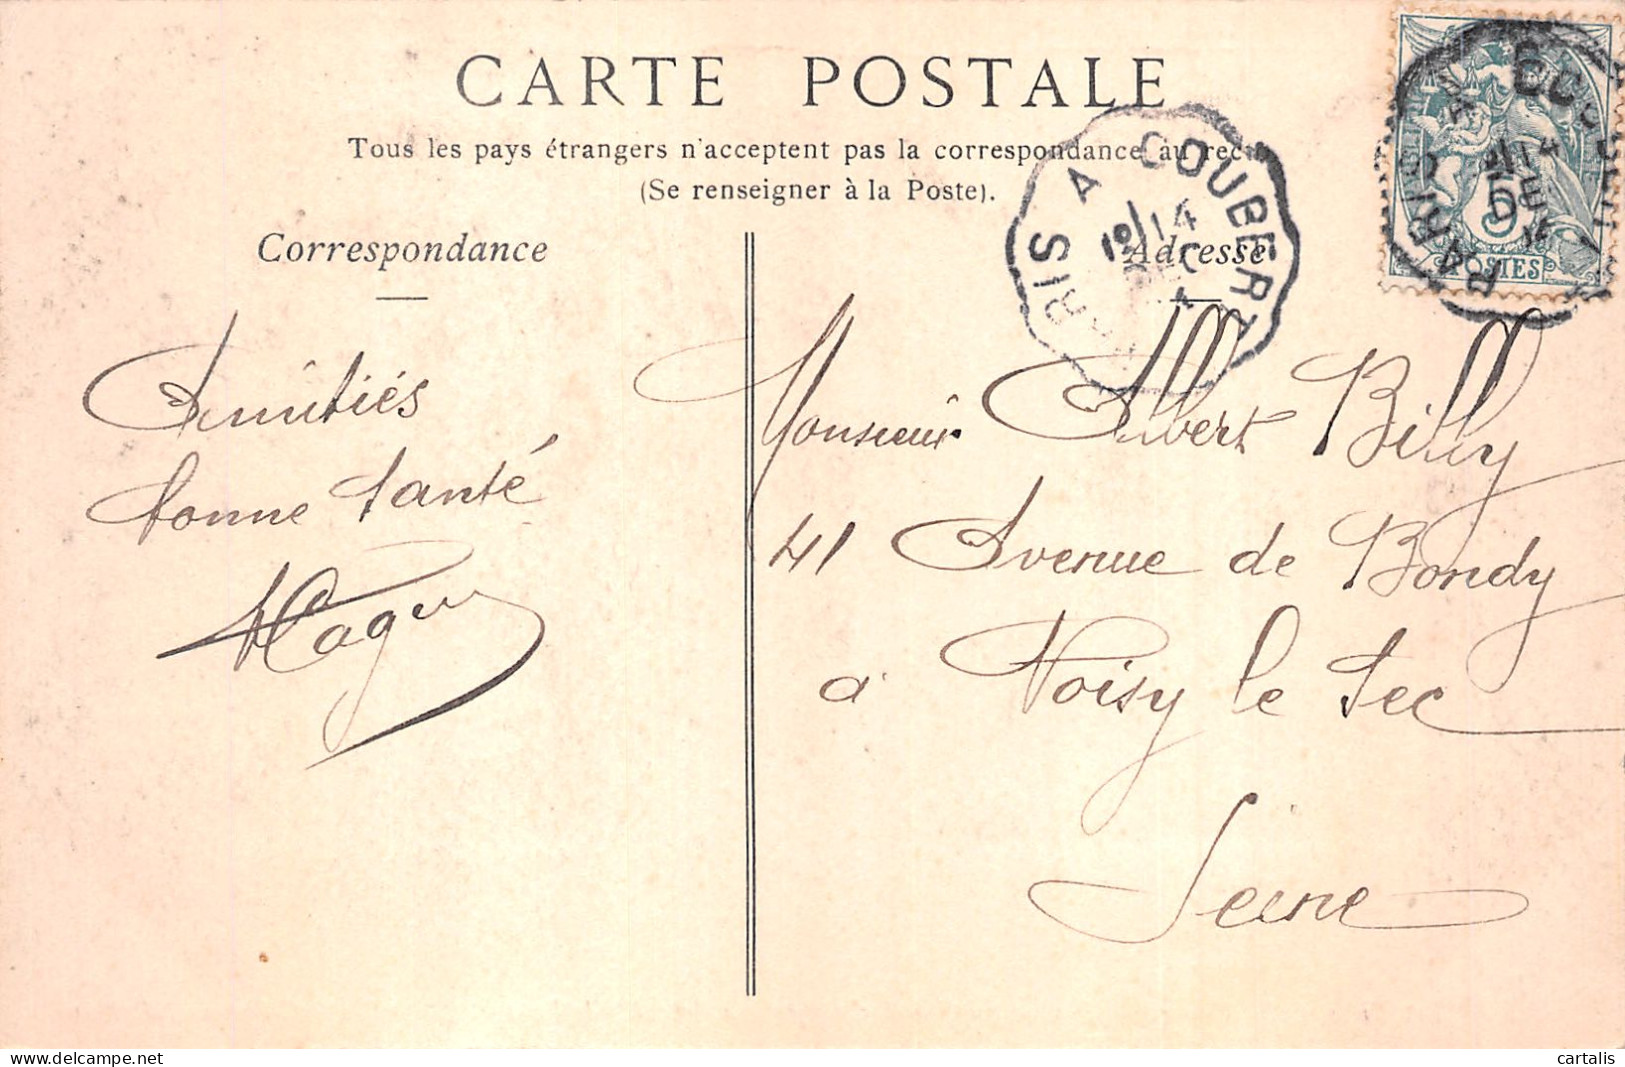 CARTE POSTALE
Tous les pays étrangers n'acceptent pas la correspondance au recto
(Se renseigner à la Poste).
Correspondance
Adresse
PARIS A COUBERT
14
DEC
POSTES
5
Amitiés
bonne santé
Monsieur Albert Billy
41 Avenue de Bondy
à Noisy le Sec
Seine
delcampe.net
cartalis